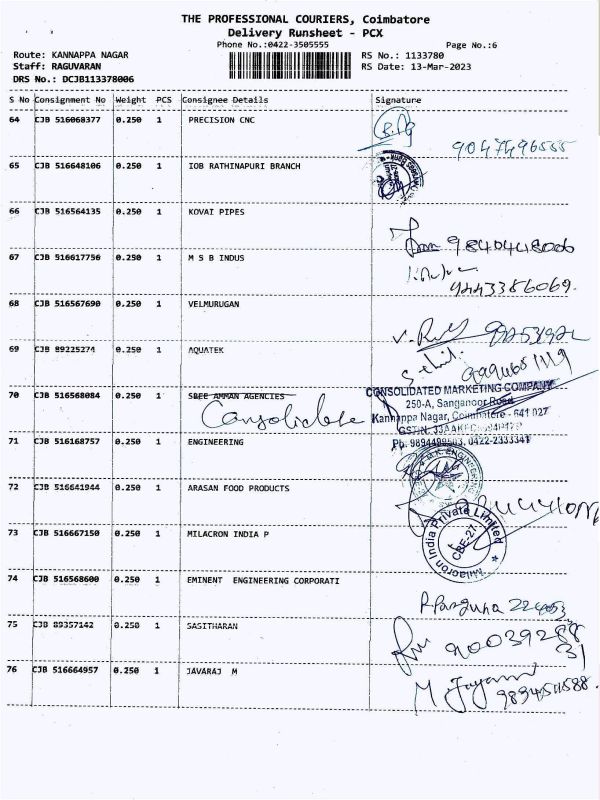 THE PROFESSIONAL COURIERS, Coimbatore
Delivery Runsheet - PCX
Phone No.:0422-3505555
Page No.:6
Route: KANNAPPA NAGAR
RS No.: 1133780
Staff: RAGUVARAN
RS Date: 13-Mar-2023
DRS No.: DCJB113378006
S No Consignment No Weight PCS Consignee Details Signature
64 CJB 516068377 0.250 1 PRECISION CNC
9047496555
65 CJB 516648106 0.250 1 IOB RATHINAPURI BRANCH
66 CJB 516564135 0.250 1 KOVAI PIPES
9840448006
67 CJB 516617756 0.250 1 M S B INDUS
9443386069.
68 CJB 516567690 0.250 1 VELMURUGAN
69 CJB 89225274 0.250 1 AQUATEK
70 CJB 516568084 0.250 1 SREE AMMAN AGENCIES
CONSOLIDATED MARKETING COMPANY
250-A, Sanganoor Road
Kannappa Nagar, Coimbatore - 641 027
Ph: 9894499503, 0422-2333341
71 CJB 516168757 0.250 1 ENGINEERING
72 CJB 516641944 0.250 1 ARASAN FOOD PRODUCTS
73 CJB 516667150 0.250 1 MILACRON INDIA P
Milacron India Private Limited
CBE-27
74 CJB 516568600 0.250 1 EMINENT ENGINEERING CORPORATI
75 CJB 89357142 0.250 1 SASITHARAN
76 CJB 516664957 0.250 1 JAVARAJ M